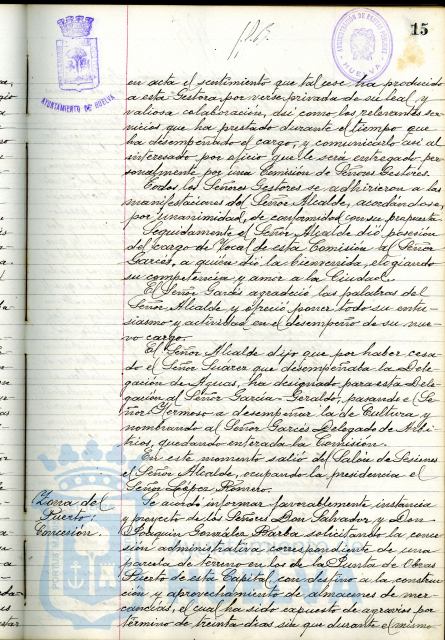 15
AYUNTAMIENTO DE HUELVA
ADMINISTRACIÓN DE RENTAS PÚBLICAS
HUELVA
en acta el sentimiento que tal cese ha producido
a esta Gestora, por verse privada de su leal y
valiosa colaboración, así como los relevantes ser-
vicios que ha prestado durante el tiempo que
ha desempeñado el cargo, y comunicarlo así al
interesado por oficio que le será entregado per-
sonalmente por una Comisión de Señores Gestores.
Todos los Señores Gestores se adhirieron a las
manifestaciones del Señor Alcalde, acordándose,
por unanimidad, de conformidad con su propuesta.
Seguidamente el Señor Alcalde dió posesión
del cargo de Vocal de esta Comisión al Señor
Garcés, a quien dió la bienvenida, elogiando
su competencia y amor a la Ciudad.
El Señor Garcés agradeció las palabras del
Señor Alcalde y ofreció poner todo su entu-
siasmo y actividad en el desempeño de su nue-
vo cargo.
El Señor Alcalde dijo que por haber cesa-
do el Señor Suárez que desempeñaba la Dele-
gación de Aguas, ha designado para esta Dele-
gación al Señor García-Geraldo, pasando el Se-
ñor Hermoso a desempeñar la de Cultura y
nombrando al Señor Garcés Delegado de Arbi-
trios, quedando enterada la Comisión.
En este momento salió del Salón de Sesiones
el Señor Alcalde, ocupando la presidencia el
Señor López Romero.
Zona del
Puerto:
Concesión.
Se acordó informar favorablemente instancia
y proyecto de los Señores Don Salvador y Don
Joaquín González Barba solicitando la conce-
sión administrativa correspondiente de una
parcela de terreno en los de la Junta de Obras
Puerto de esta Capital con destino a la construc-
ción y aprovechamiento de almacenes de mer-
cancías, el cual ha sido expuesto de agravios por
término de treinta días sin que durante el mismo